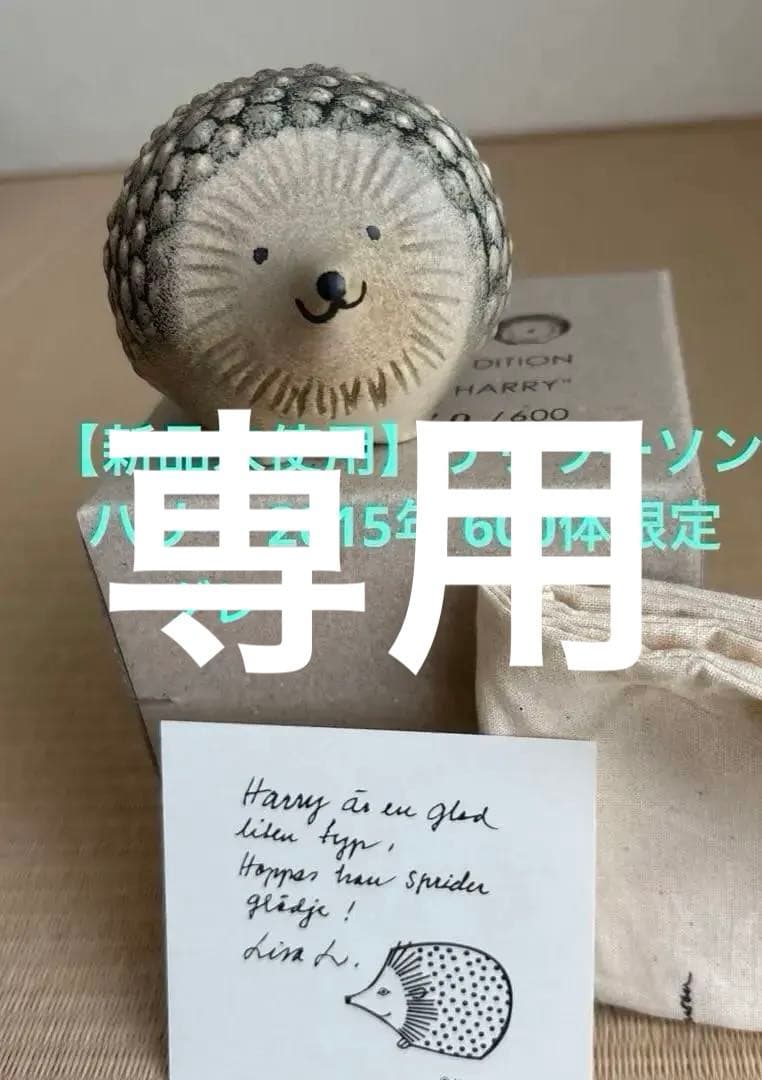 DITION
HARRY"
/600
【新品未使用】
ーソン
2015年 600体限定
専用
Harry är en glad
liten typ,
Hoppas han sprider
glädje!
Lisa L.